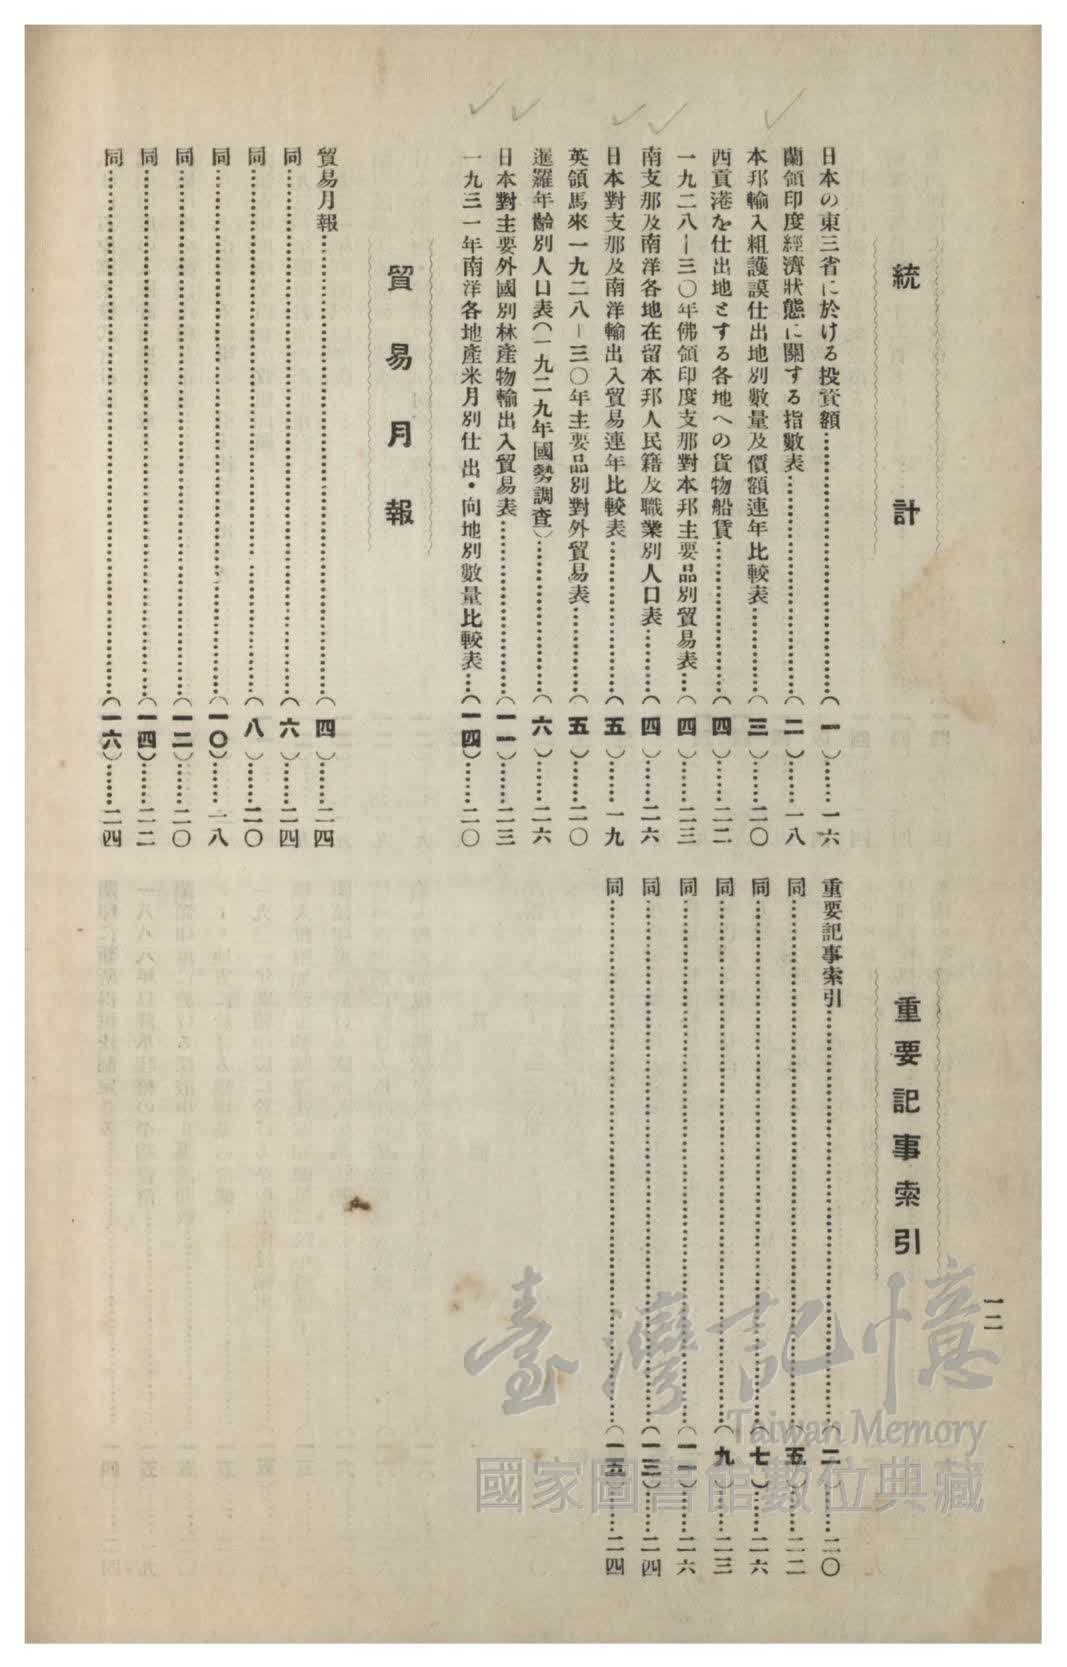 統計
日本の東三省に於ける投資額……(一)……一六
蘭領印度經濟狀態に關する指數表……(二)……一八
本邦輸入粗護謨仕出地別數量及價額連年比較表……(三)……二〇
西貢港を仕出地とする各地への貨物船賃……(四)……二二
一九二八ー三〇年佛領印度支那對本邦主要品別貿易表……(四)……二三
南支那及南洋各地在留本邦人民籍及職業別人口表……(四)……二六
日本對支那及南洋輸出入貿易連年比較表……(五)……一九
英領馬來一九二八ー三〇年主要品別對外貿易表……(五)……二〇
暹羅年齡別人口表(一九二九年國勢調査)……(六)……二六
日本對主要外國別林産物輸出入貿易表……(一一)……二三
一九三一年南洋各地産米月別仕出・向地別數量比較表……(一四)……二〇
貿易月報
貿易月報……(四)……二四
同……(六)……二四
同……(八)……二〇
同……(一〇)……一八
同……(一二)……二〇
同……(一四)……二二
同……(一六)……二四
重要記事索引
重要記事索引……(二)……二〇
同……(五)……二二
同……(七)……二六
同……(九)……二三
同……(一一)……二六
同……(一三)……二四
同……(一五)……二四
一二
臺灣記憶
Taiwan Memory
國家圖書館數位典藏